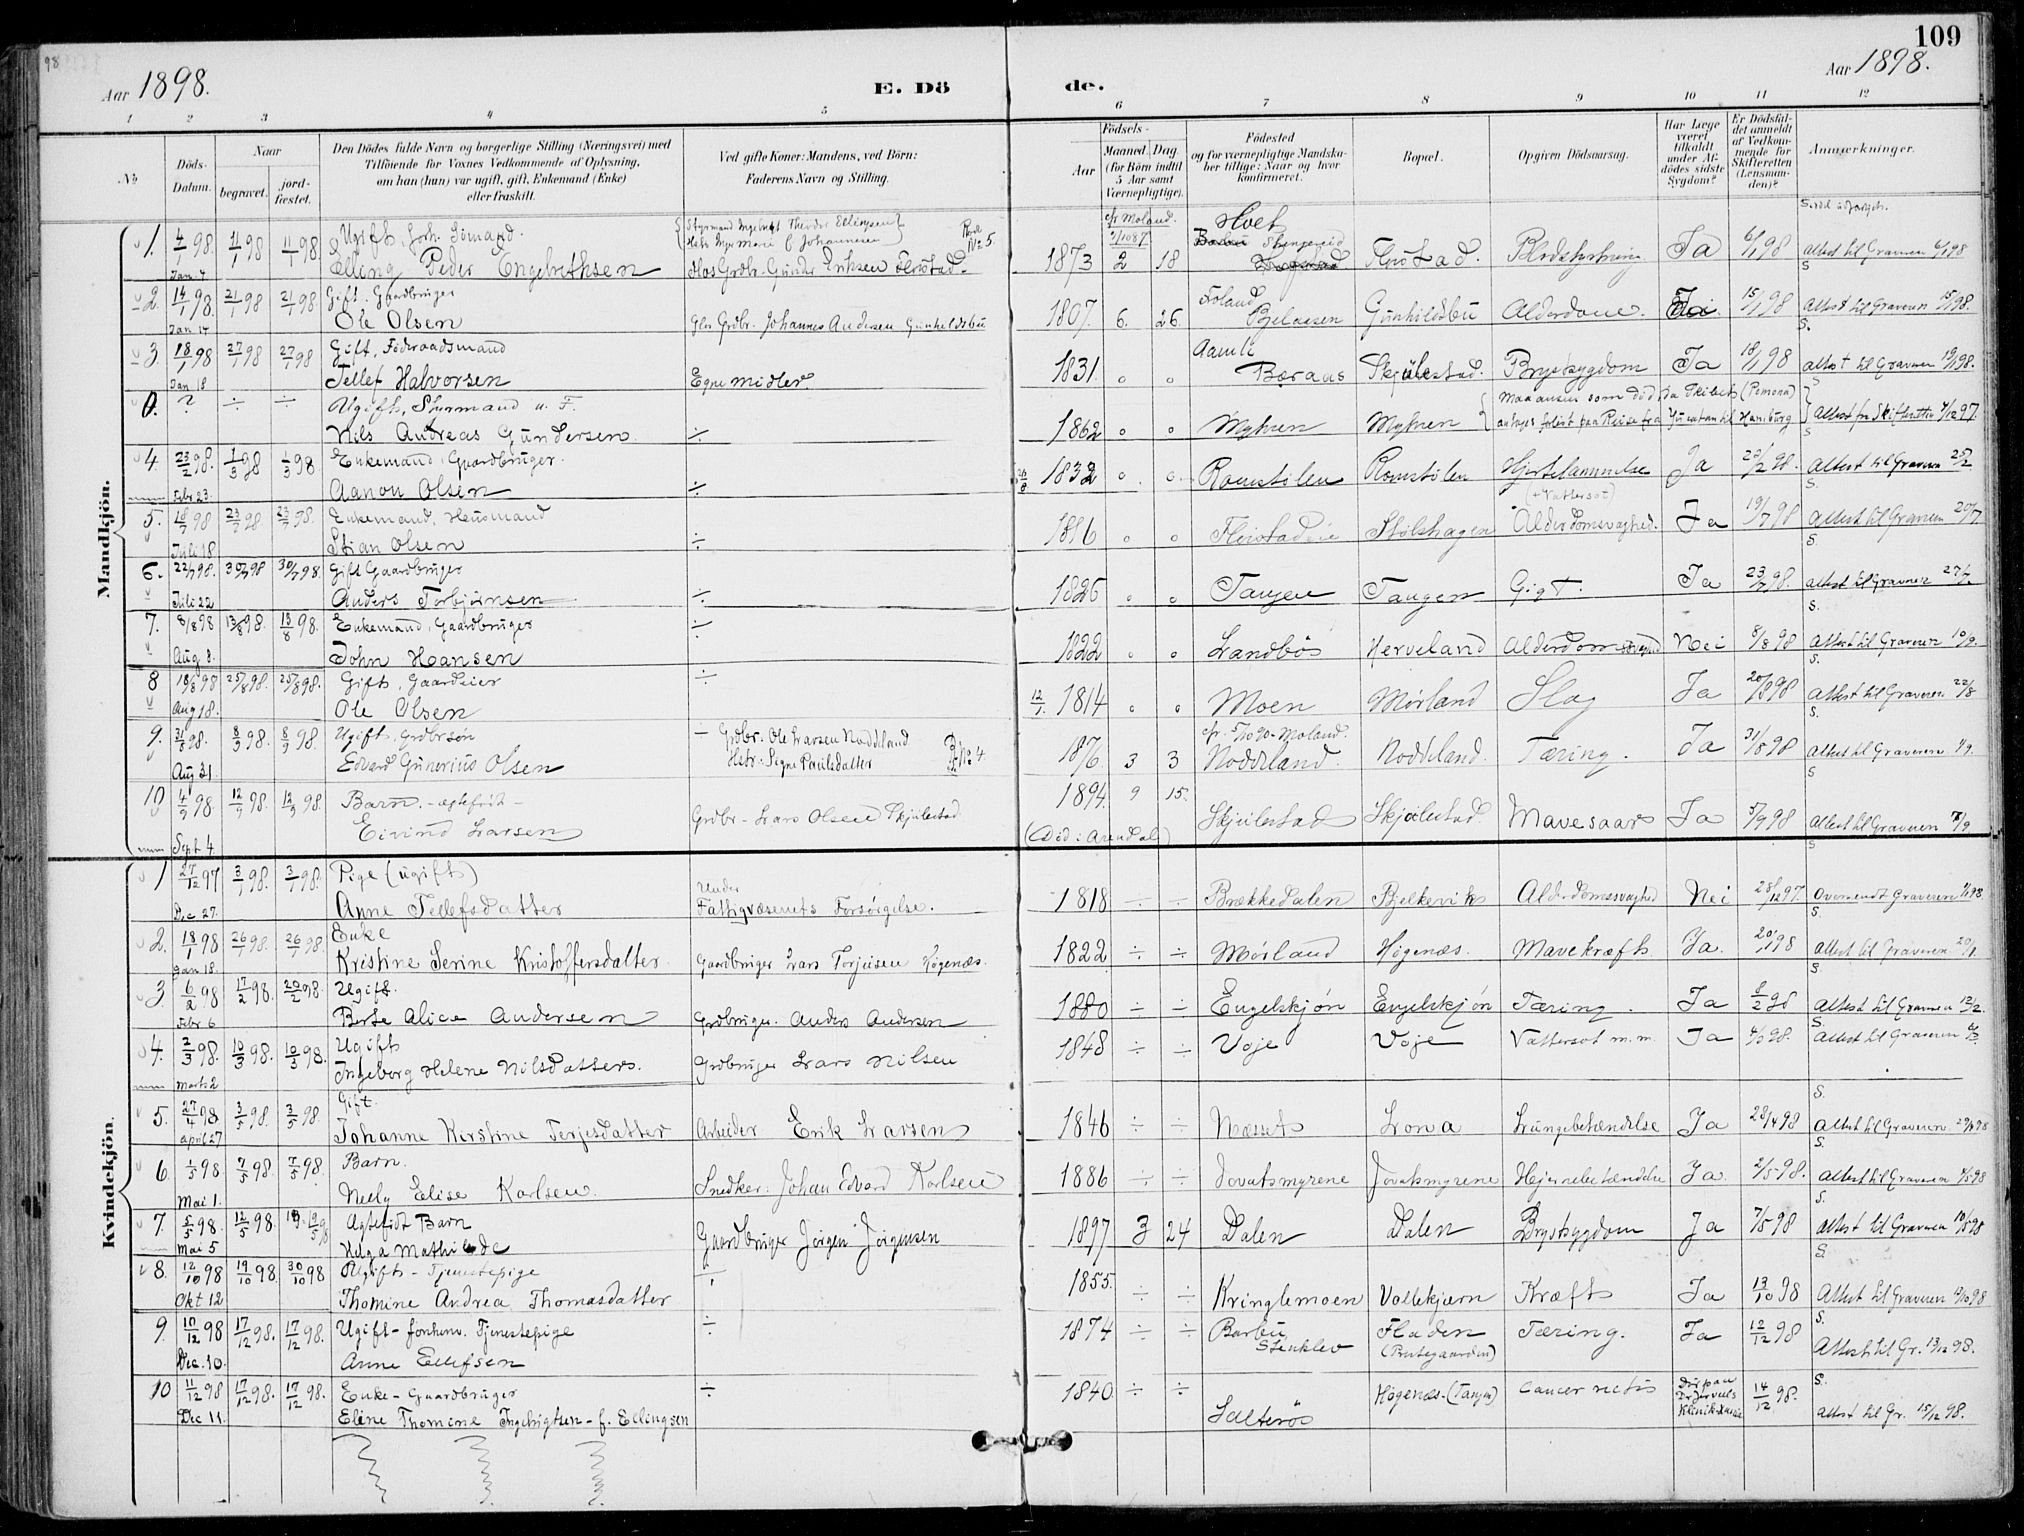 98
109
Aar 1898.
E. Dö de.
Aar 1898.
1 2 3 4 5 6 7 8 9 10 11 12
No
Döds-Datum.
Naar
begravet.
jord-fæstet.
Den Dödes fulde Navn og borgerlige Stilling (Næringsvei) med
Tilföiende for Voxnes Vedkommende af Oplysning,
om han (hun) var ugift, gift, Enkemand (Enke)
eller fraskilt.
Ved gifte Koner: Mandens, ved Börn:
Faderens Navn og Stilling.
Födsels-
Aar
Maaned. Dag.
(for Börn indtil
5 Aar samt
Værnepligtige).
Födested
og for værnepligtige Mandska-
ber tillige: Naar og hvor
konfirmeret.
Bopæl.
Opgiven Dödsaarsag.
Har Læge
været
tilkaldt
under Af-
dödes sidste
Sygdom?
Er Dödsfal-
det anmeldt
af Vedkom-
mende for
Skifteretten
(Lensman-
den)?
Anmærkninger.
Mandkjön.
1. 4/1 98. 11/1 98 11/1 98 Ugift, forh. Sömand.
Jan. 4 Elling Peder Engebrethsen Hos Grdbr. Gunder Eriksen 1873 2 18 Ja 6/1 98 Attest til Graveren 6/1 98
2. 14/1 98. 21/1 98 21/1 98 Gift. Gaardbruger
Jan 14 Ole Olsen Grdbr. Johannes Andersen Gunhildsbu 1807. 6. 26. Froland Gunhildsbu 15/1 98 Attest til Graveren 15/1 98.
3. 18/1 98 27/1 98 27/1 98 Gift, Föderaadsmand
Jan 18 Tellef Halvorsen Egne midler 1831. 0 0 Aamli Beraas Skjulestad. Brystsygdom Ja 18/1 98 Attest til Graveren 19/1 98.
0. ? ÷ ÷ Ugift, Styrmand u. F.
Nils Andreas Gundersen ÷ 1862 0 0 Myhren Myhren som död, da Skibet (Pomona) antages forlist paa Reise fra Yucatan til Hamburg Attest fra Skifteretten 97.
4. 23/2 98. 1/3 98 1/3 98 Enkemand, Gaardbruger.
Febr 23. Aanon Olsen ÷ 1832 0 0 Romstölen Romstölen Hjertelammelse (+ Vattersot) Ja Attest til Graveren 25/2
5. 18/7 98 23/7 98 23/7 98. Enkemand, Husmand
Juli 18 Stian Olsen ÷ 1816 0 0 Stölshagen Alderdomsvaghed. Ja 19/7 98 Attest til Graveren 20/7
6. 22/7 98. 30/7 98 30/7 98. Gift Gaardbruger
Juli 22 Anders Torbjörnsen ÷ 1826 0 0 Tangen Tangen Gigt. Ja 23/7 98. Attest til Graveren 27/7
7. 8/8 98 13/8 98. 13/8 98. Enkemand, Gaardbruger
Aug 8. John Hansen ÷ 1822 0 0 Landbö Herveland Nei 8/8 98 Attest til Graveren
8 18/8 98 25/8 98. 25/8 98. Gift, Gaardeier
Aug 18. Ole Olsen ÷ 12/1. 1814 0 0 Moen Mörland Slag Ja 20/8 98 Attest til Graveren 22/8
9. 31/8 98. 8/9 98. 8/9 98. Ugift, Grdbrsön
Aug 31 Edvard Gunerius Olsen Grdbr. Ole Larsen Noddeland Hstr. Signe Paulsdatter 1876 3 3 Noddeland. Noddeland. Tæring. Ja 31/8 98 Attest til Graveren 1/9.
10 4/9 98 12/9 98. 12/9 98 Barn. - ægtefödt -
Sept 4 Eivind Larsen Grdbr - Lars Olsen Skjulestad 1894. 9 15. (Död i Arendal) Skjulestad Skjulestad. Mavesaar Ja 5/9 98 Attest til Graveren
Kvindekjön.
1 27/12 97 3/1 98. 3/1 98. Pige (ugift)
Dec 27. Anne Tellefsdatter Under Fattigvæsenets Forsörgelse. 1818 ÷ ÷ Brækkedalen Bjelkevik Alderdomsvaghed Nei 28/12 97. Oversendt Graveren
2. 18/1 98 26/1 98. 26/1 98. Enke
Jan 18. Kristine Serine Kristoffersdatter Gaardbruger Lars Terjusen Högenæs. 1822 ÷ ÷ Mörland Högenæs. Mavekræft Ja. 20/1 98 Attest til Graveren 20/1.
3. 6/2 98 17/2 98. Ugift.
Febr 6 Berte Alice Andersen Grdbruger. Anders Andersen 1880 ÷ ÷ Engelskjön Engelskjön Tæring. Ja 8/2 98 Attest til Graveren 12/2.
4. 2/3 98. 10/3 98. 10/3 98. Ugift
Marts 2 Ingeborg Helene Nilsdatter. Grdbruger Lars Nilsen 1848 ÷ ÷ Voje Voje Vattersot m.m. Ja 4/3 98. Attest til Graveren
5. 27/4 98 3/5 98. 3/5 98. Gift.
April 27 Johanne Kirstine Terjesdatter Arbeider Erik Larsen 1846 ÷ ÷ Næsset Lona Lungebetændelse Ja 28/4 98 Attest til Graveren. 29/4 98
6. 1/5 98 7/5 98. 7/5 98. Barn.
Mai 1. Neely Elise Karlsen. Snedker. Johan Edvard Karlsen 1886 ÷ ÷ Jovatsmyrene Jovatsmyrene Hjernebetændelse Ja. 2/5 98. Attest til Graveren
7. 5/5 98. 12/5 98. Ægtefödt Barn
Mai 5 Helga Mathilde Gaardbruger Jörgen Jörgensen 1897 3 24 Dalen Dalen Brystsygdom Ja 7/5 98 Attest til Graveren 10/5 98
8. 12/10 98 19/10 98. 30/10 98 Ugift - Tjenestepige
Okt 12 Thomine Andrea Thomasdatter ÷ 1855. ÷ ÷ Kringlemoen Vollekjærn Kræft Ja 13/10 98 Attest til Graveren
9. 10/12 98 17/12 98. 17/12 98. Ugift - forhenv. Tjenestepige
Dec. 10. Anne Ellefsen ÷ 1874 ÷ ÷ Barbu Stenklev Fladen (Prestegaarden) Tæring. Ja 12/12 98 Attest til Gr. 13/12 98.
10 11/12 98 17/12 98. 17/12 98. Enke - Gaardbruger
Dec 11. Eline Thomine Ingebrigtsen - f. Ellingsen ÷ 1840 ÷ ÷ Salterös Högenæs. (Tangen) 14/12 98. Attest til Gr. 15/12 98.